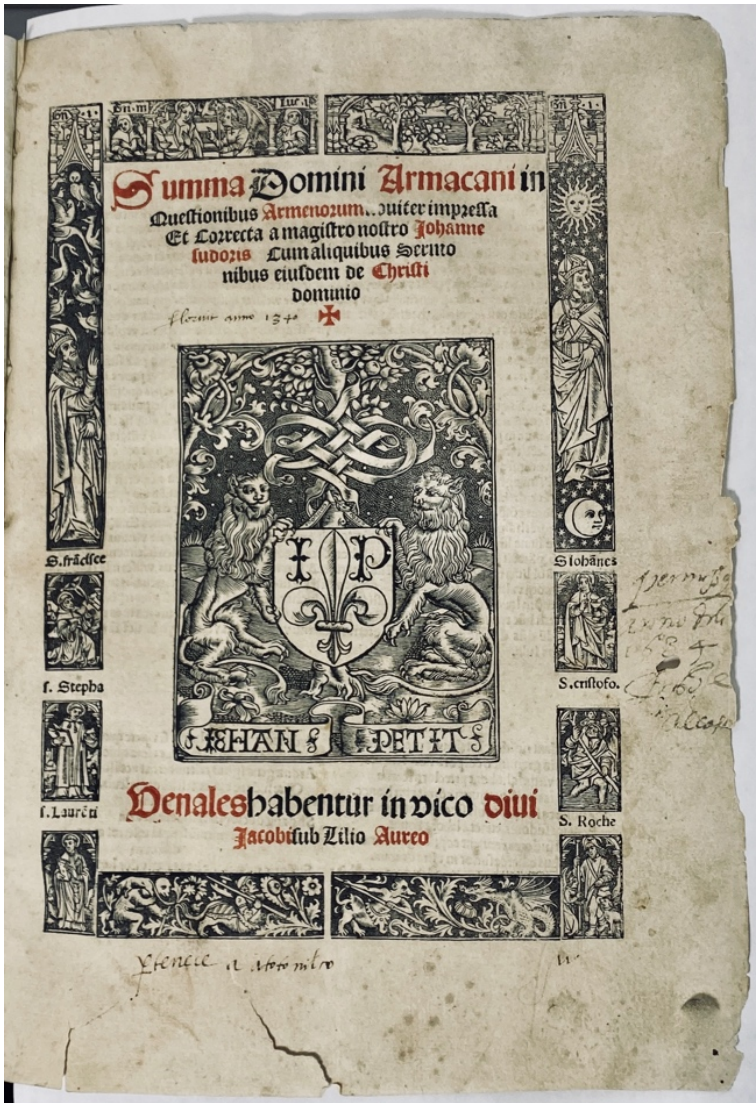 Summa Domini Armacani in
Questionibus Armenorum..ouiter impressa
Et Correcta a magistro nostro Johanne
sudoris Cum aliquibus Sermo
nibus eiusdem de Christi
dominio
floruit anno 134
I P
IEHAN PETIT
S. frācisce
s. Stepha
s. Laurēti
S Iohānes
S. cristofo.
S. Roche
Venales habentur in vico diui
Jacobi sub Lilio Aureo